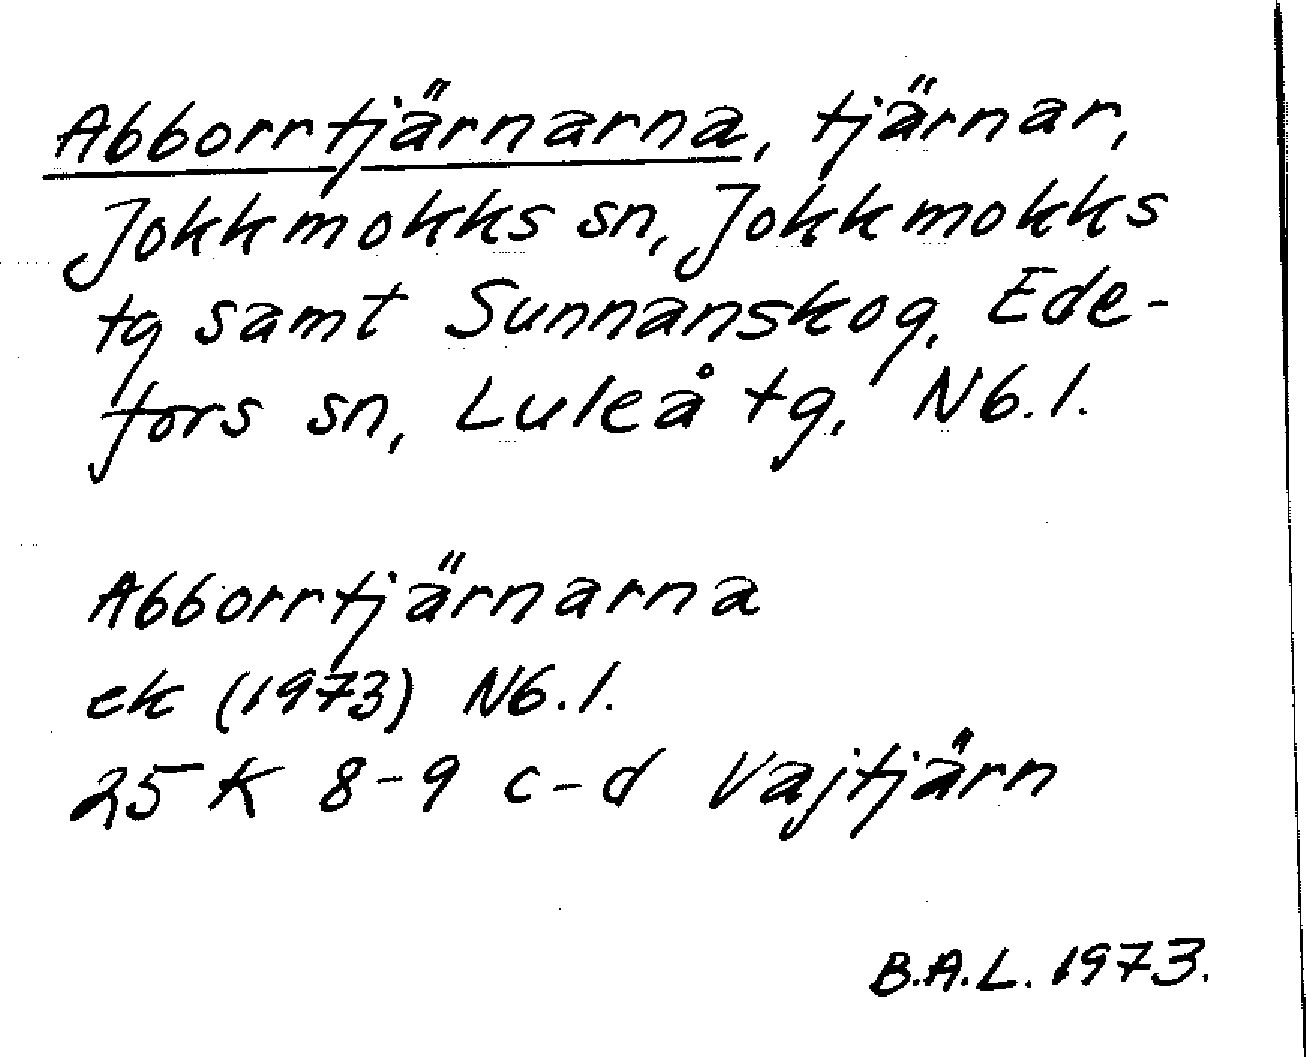 Abborrtjärnarna, tjärnar,
Jokkmokks sn, Jokkmokks
tg samt Sunnanskog, Ede-
fors sn, Luleå tg, Nb.l.
Abborrtjärnarna
ek (1973) Nb.l.
25 K 8-9 c-d Vajtjärn
B.A.L. 1973.